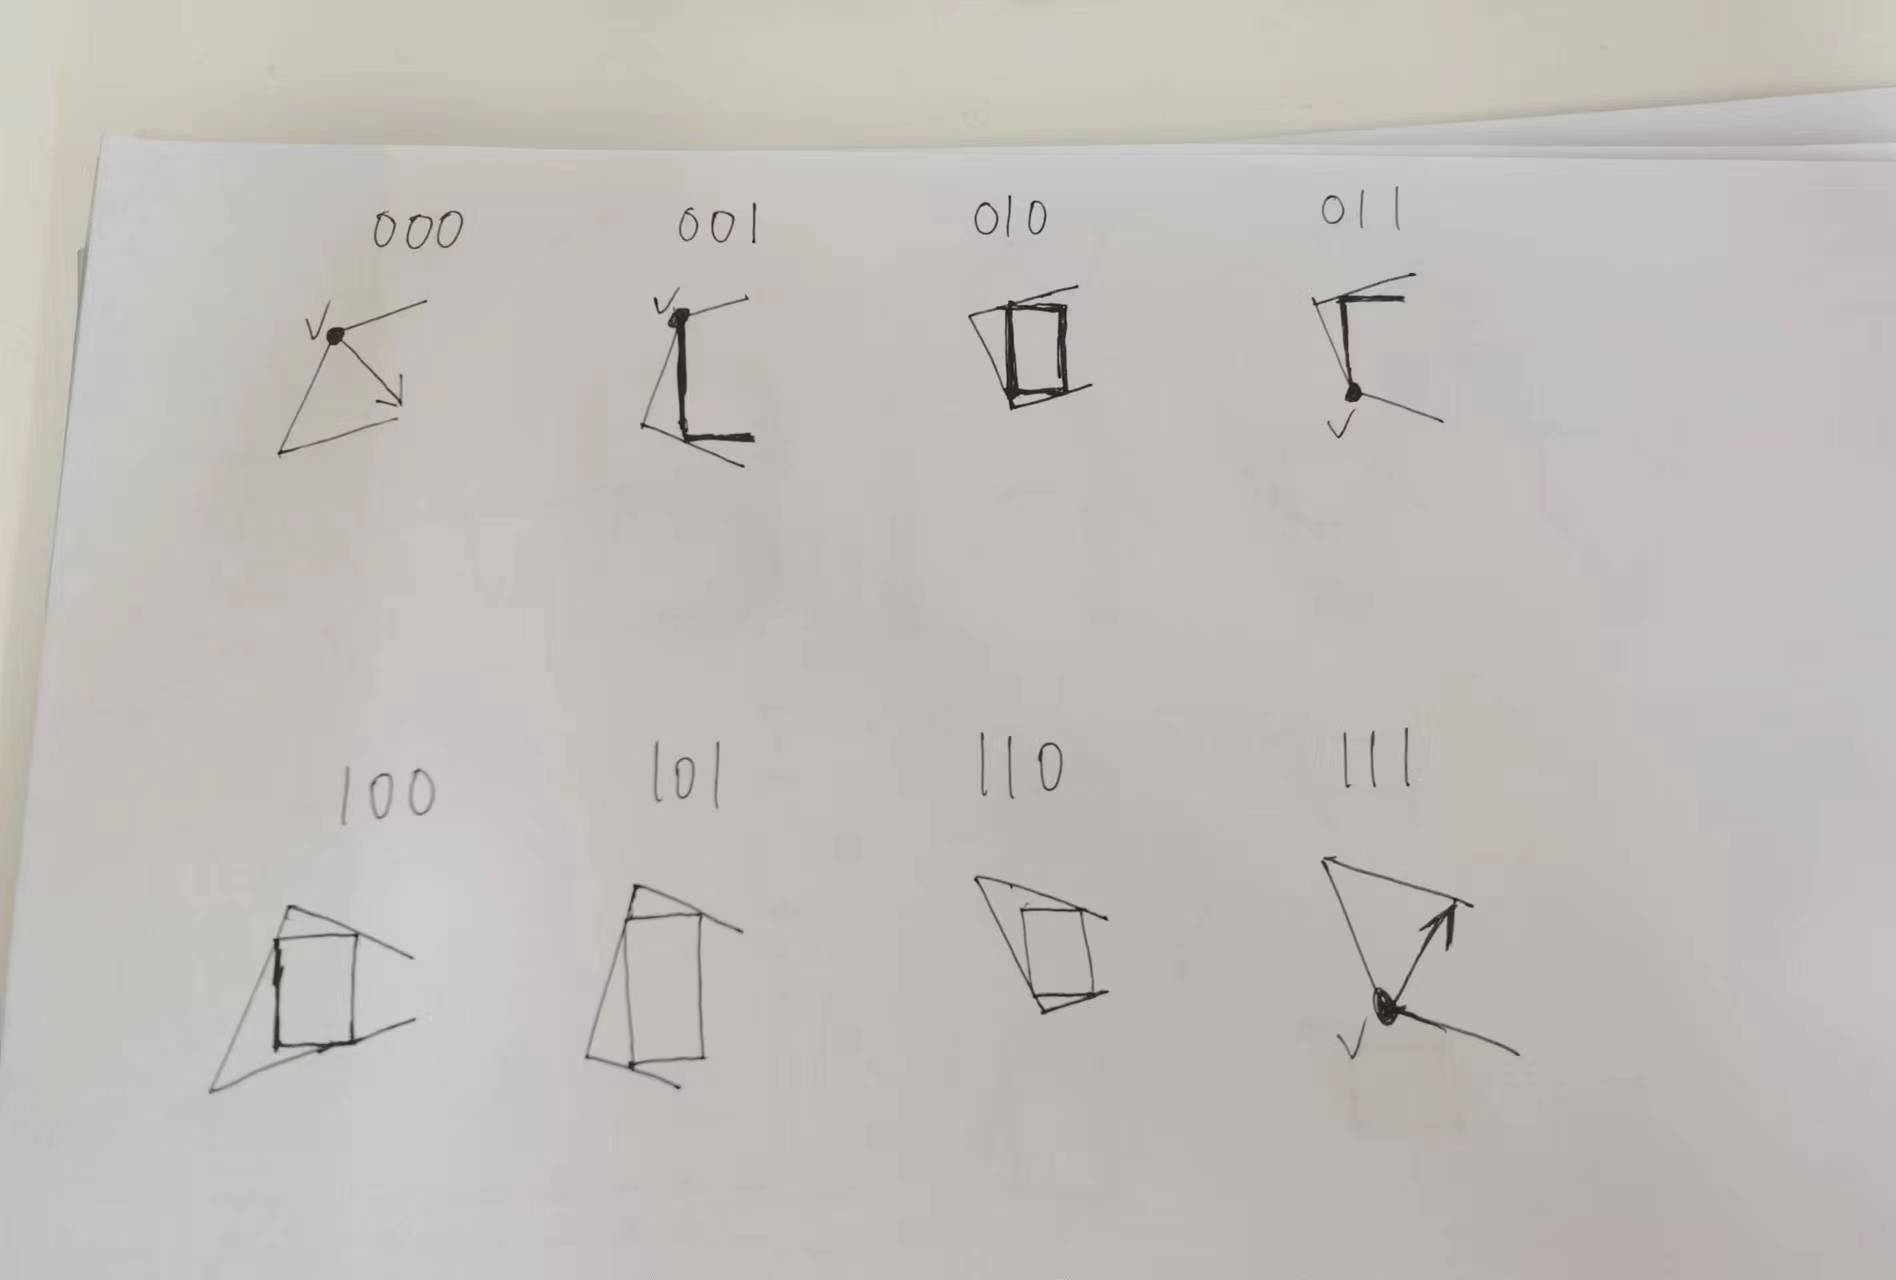 000 001 010 011
V V
V
100 101 110 111
V